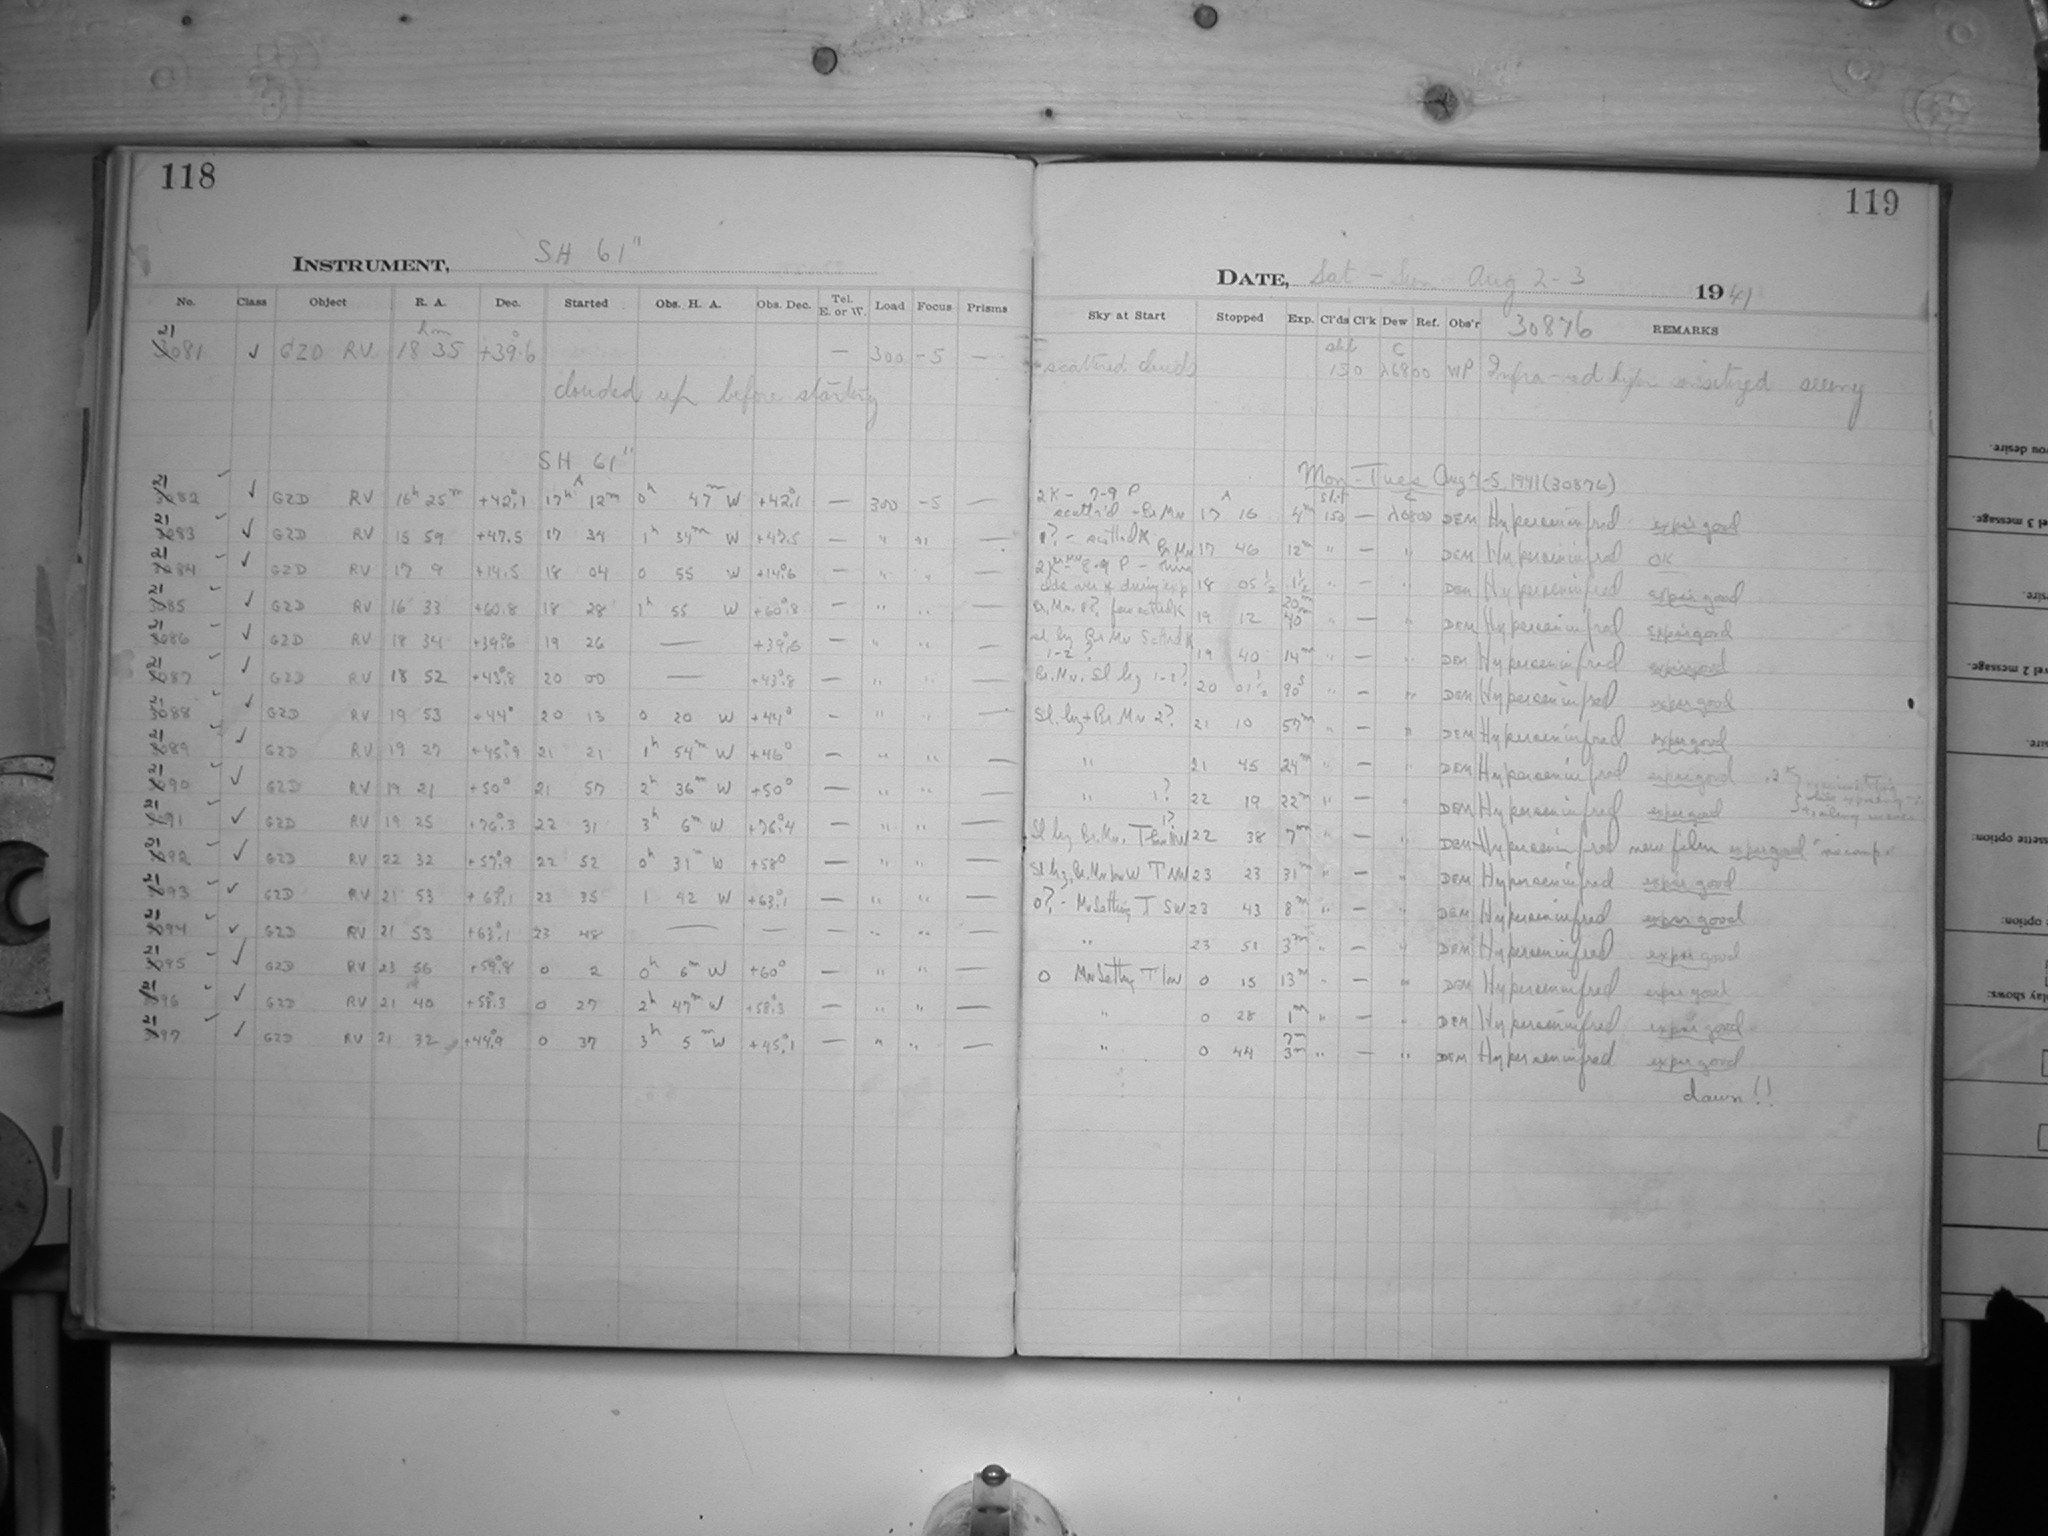 118
INSTRUMENT, SH 61"
No. Class Object R. A. Dec. Started Obs. H. A. Obs. Dec. Tel. E. or W. Load Focus Prisms
h m °
21 3081 ✓ GZD RV 18 35 +39.6 — 300 -5 —
clouded up before starting
SH 61"
21 3082 ✓ GZD RV 16h 25m +42°.1 17h 12m 0h 47m W +42°.1 — 300 -5 —
21 3083 ✓ GZD RV 15 59 +47.5 17 34 1h 34m W +47.5 — " " —
21 3084 ✓ GZD RV 17 9 +14.5 18 04 0 55 W +14°.6 — " " —
21 3085 ✓ GZD RV 16 33 +60.8 18 28 1h 55 W +60°.8 — " " —
21 3086 ✓ GZD RV 18 34 +39°.6 19 26 — +39°.6 — " " —
21 3087 ✓ GZD RV 18 52 +43°.8 20 00 — +43°.8 — " " —
21 3088 ✓ GZD RV 19 53 +44° 20 13 0 20 W +44° — " " —
21 3089 ✓ GZD RV 19 27 +45°.9 21 21 1h 54m W +46° — " " —
21 3090 ✓ GZD RV 19 21 +50° 21 57 2h 36m W +50° — " " —
21 3091 ✓ GZD RV 19 25 +76°.3 22 31 3h 6m W +76°.4 — " " —
21 3092 ✓ GZD RV 22 32 +57°.9 22 52 0h 31m W +58° — " " —
21 3093 ✓ GZD RV 21 53 +63°.1 23 35 1 42 W +63°.1 — " " —
21 3094 ✓ GZD RV 21 53 +63°.1 23 48 — — — " " —
21 3095 ✓ GZD RV 23 56 +59°.8 0 2 0h 6m W +60° — " " —
21 3096 ✓ GZD RV 21 40 +58°.3 0 27 2h 47m W +58°.3 — " " —
21 3097 ✓ GZD RV 21 32 +44°.9 0 37 3h 5m W +45°.1 — " " —
119
DATE, Sat - Sun Aug 2-3 1941
Sky at Start Stopped Exp. Cl'ds Cl'k Dew Ref. Obs'r 30876 REMARKS
slit C
scattered clouds 150 λ6800 WP Infra-red seeing
Mon - Tues Aug 4-5, 1941 (30876)
A slit C
2K - 7-9 P
scatt'd + Br Mn 17 16 4m 150 — λ6800 DEM Hypersen infred exp good
? - scattd K Br Mn 17 46 12m " — " DEM Hypersen infred OK
8-9 P - Thin
clds over * during exp 18 05½ 1½ " — " DEM Hypersen infred exp good
Br. Mn. scattd K 19 12 20m 40m " — " DEM Hypersen infred exp good
sl hzy Br Mn Scattd K
1-2 ? 19 40 14m " — " DEM Hypersen infred exp good
Br. Mn. Sl hzy 1-2? 20 01½ 90s " — " DEM Hypersen infred exp good
Sl. hzy + Br. Mn 2? 21 10 57m " — " DEM Hypersen infred exp good
" 21 45 24m " — " DEM Hypersen infred exp good
" 1? 22 19 22m " — " DEM Hypersen infred exp good
1?
Sl hzy Br. Mn. T 22 38 7m " — " DEM Hypersen infred new film exp good "no comp"
Sl hzy, Br. Mn low W T NW 23 23 31m " — " DEM Hypersen infred exp good
0? - Mn Setting T SW 23 43 8m " — " DEM Hypersen infred exp good
" 23 51 3m " — " DEM Hypersen infred exp good
0 Mn Setting T 0 15 13m " — " DEM Hypersen infred exp good
" 0 28 1m " — " DEM Hypersen infred exp good
" 0 44 7m 3m " — " DEM Hypersen infred exp good
dawn !!
you desire.
vel 3 message.
sire.
vel 2 message.
sire.
ssette option:
option:
play shows: